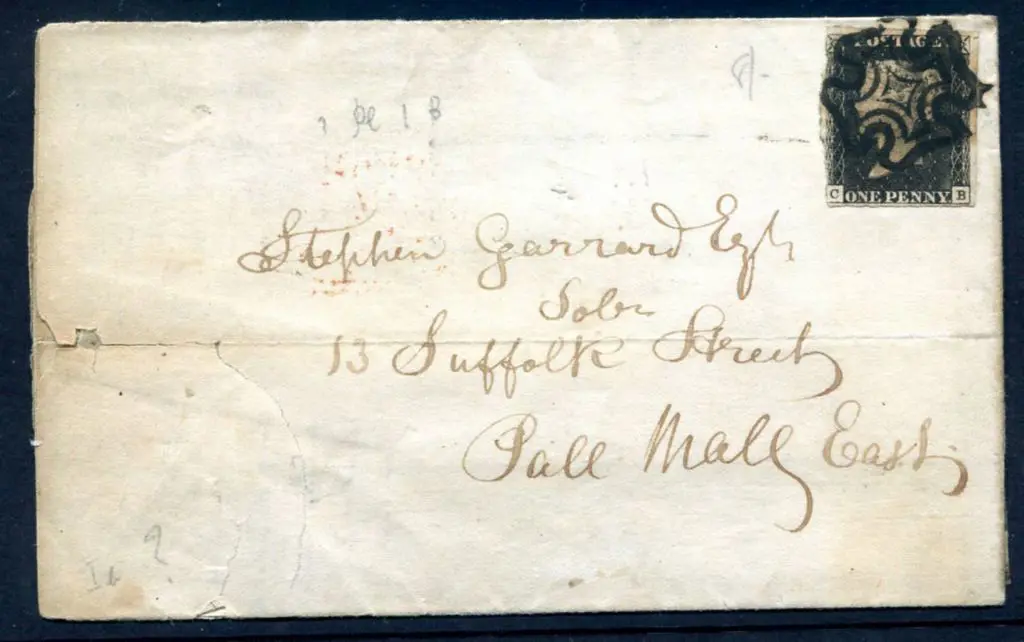 POSTAGE
C ONE PENNY B
1 B
Stephen Garrard Esq
Solr
13 Suffolk Street
Pall Mall East